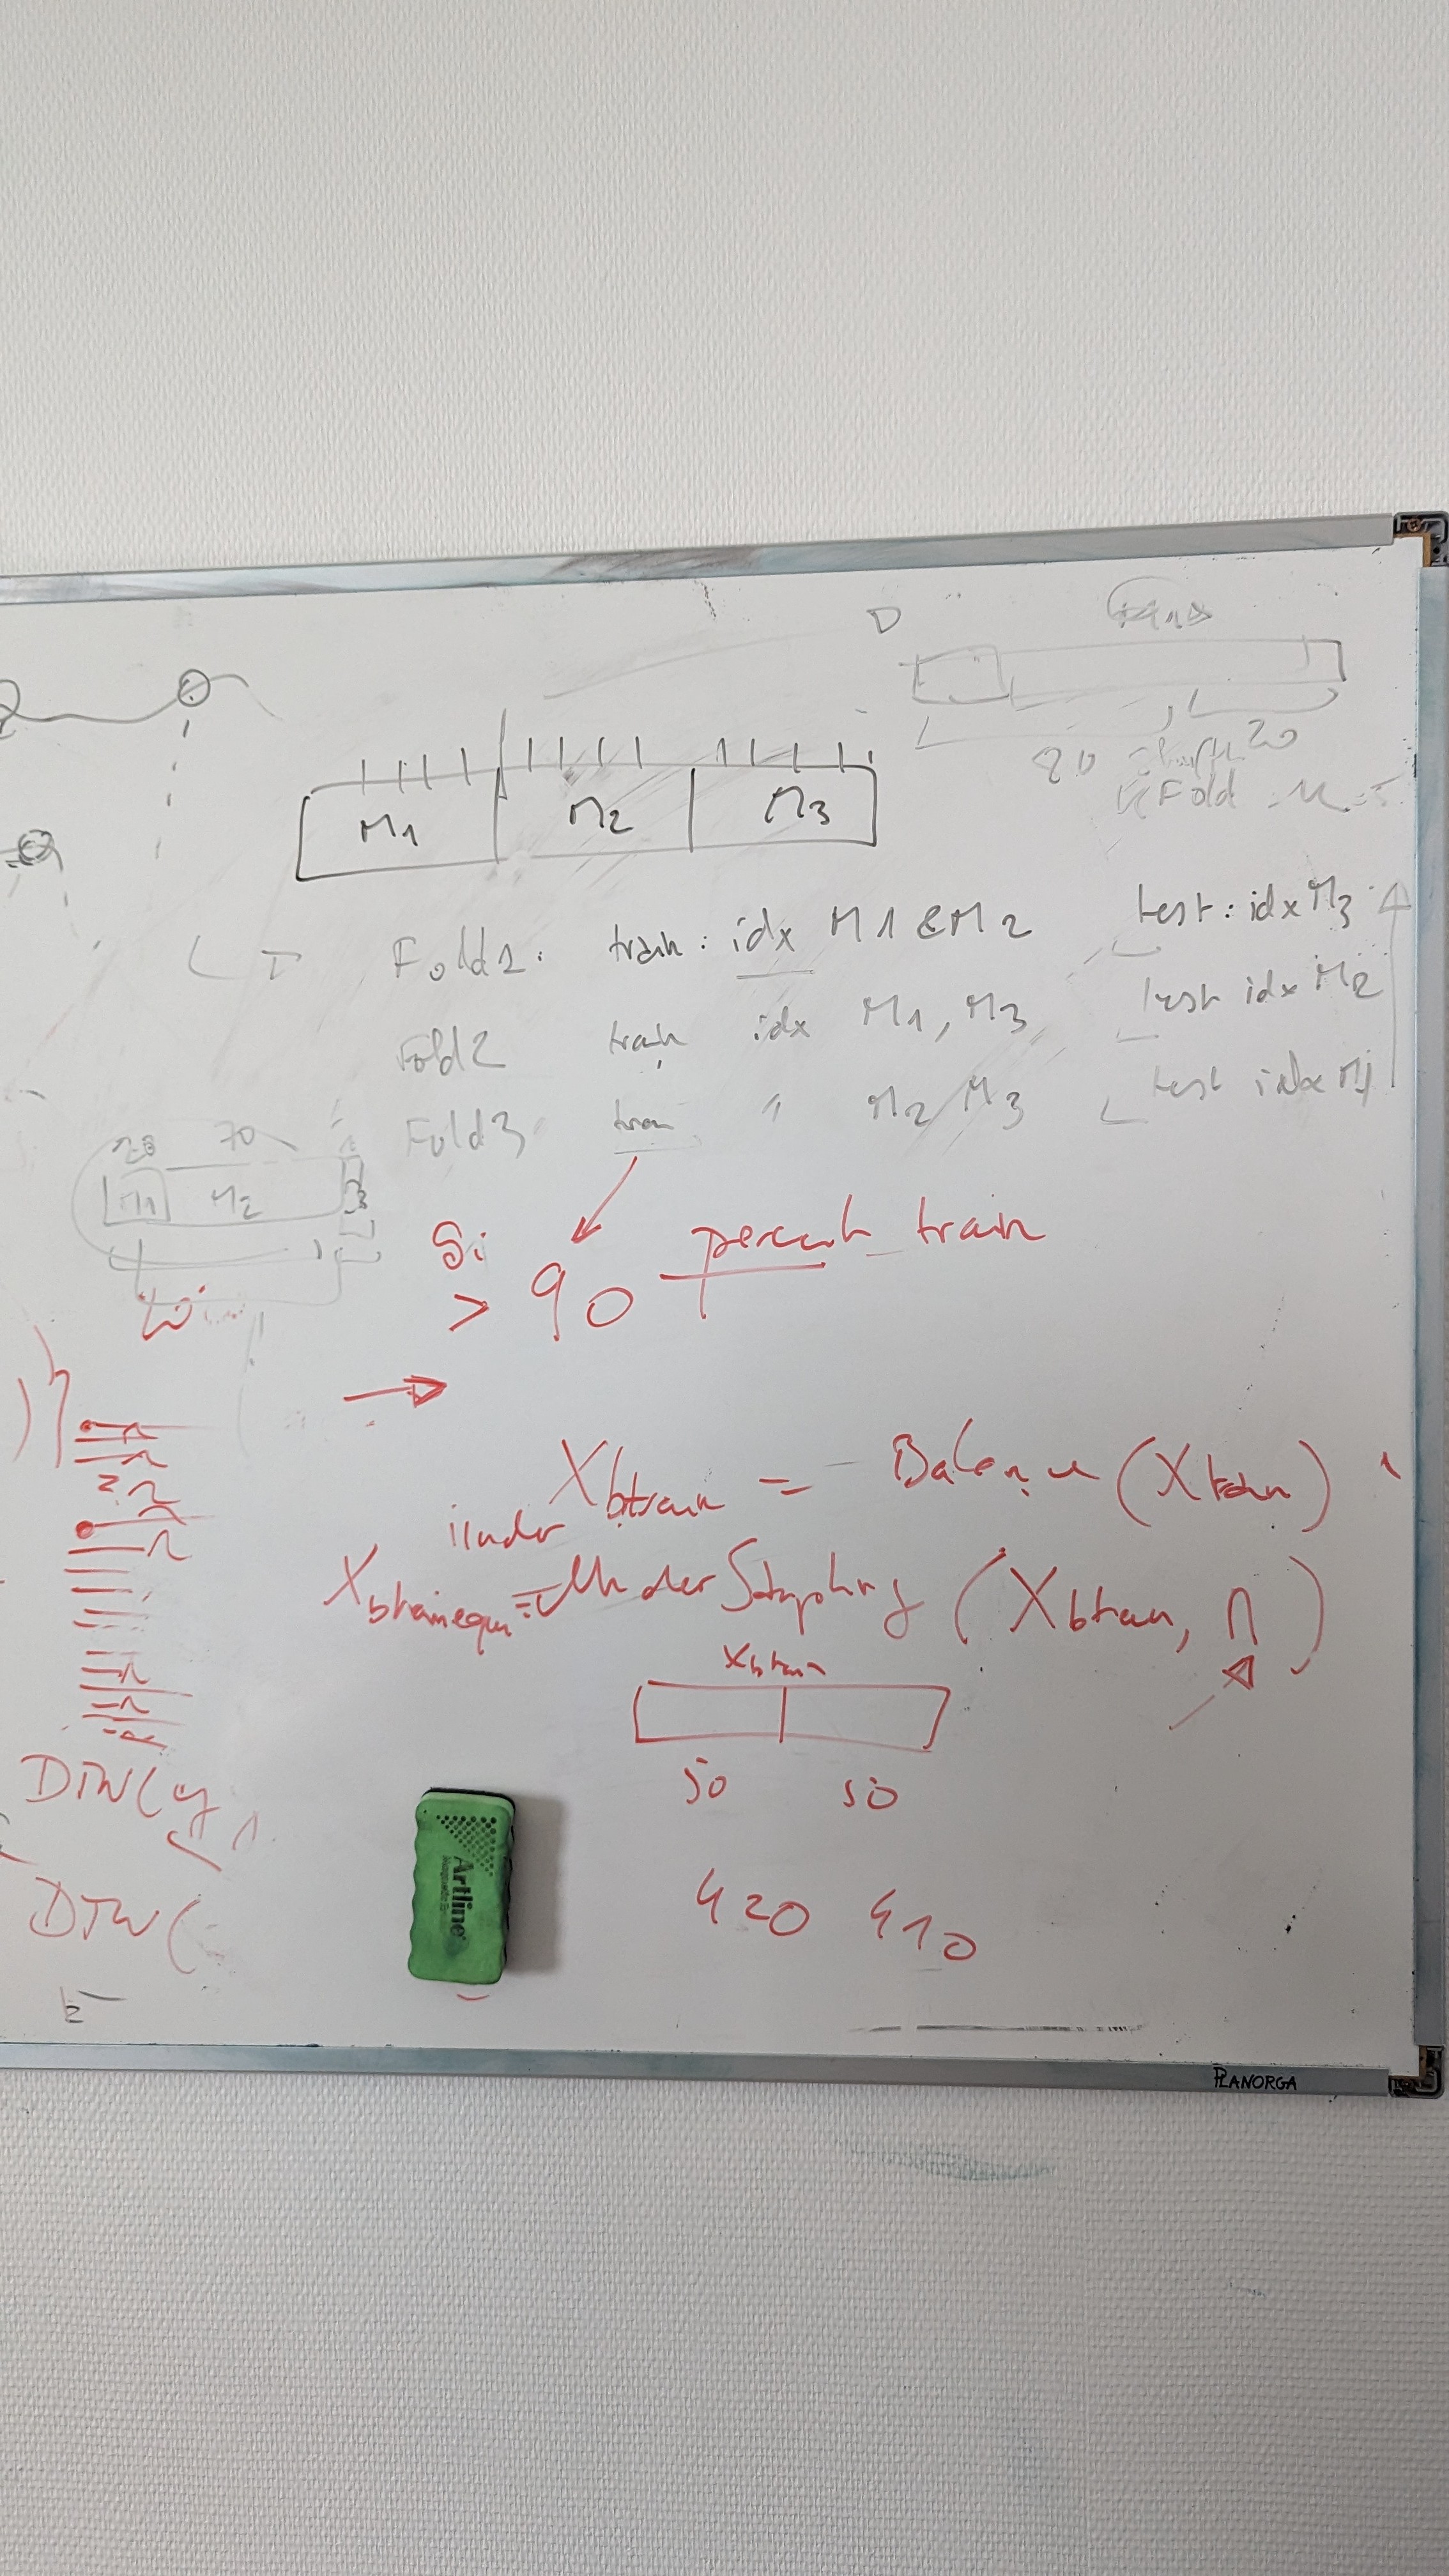 D
20
80
Fold
M1 M2 M3
Fold1: train: idx M1 & M2 test: idx M3
Fold2 train idx M1, M3 test idx M2
Fold3 train " M2 M3 test idx M1
20 70
M1 M2
Si
> 90 percent_train
Xbtrain = Balance (Xtrain)
Xbtrainequi = UnderSampling (Xbtrain, n)
Xbtrain
50 50
DTW(y
420 410
DTW(
Artline
PLANORGA